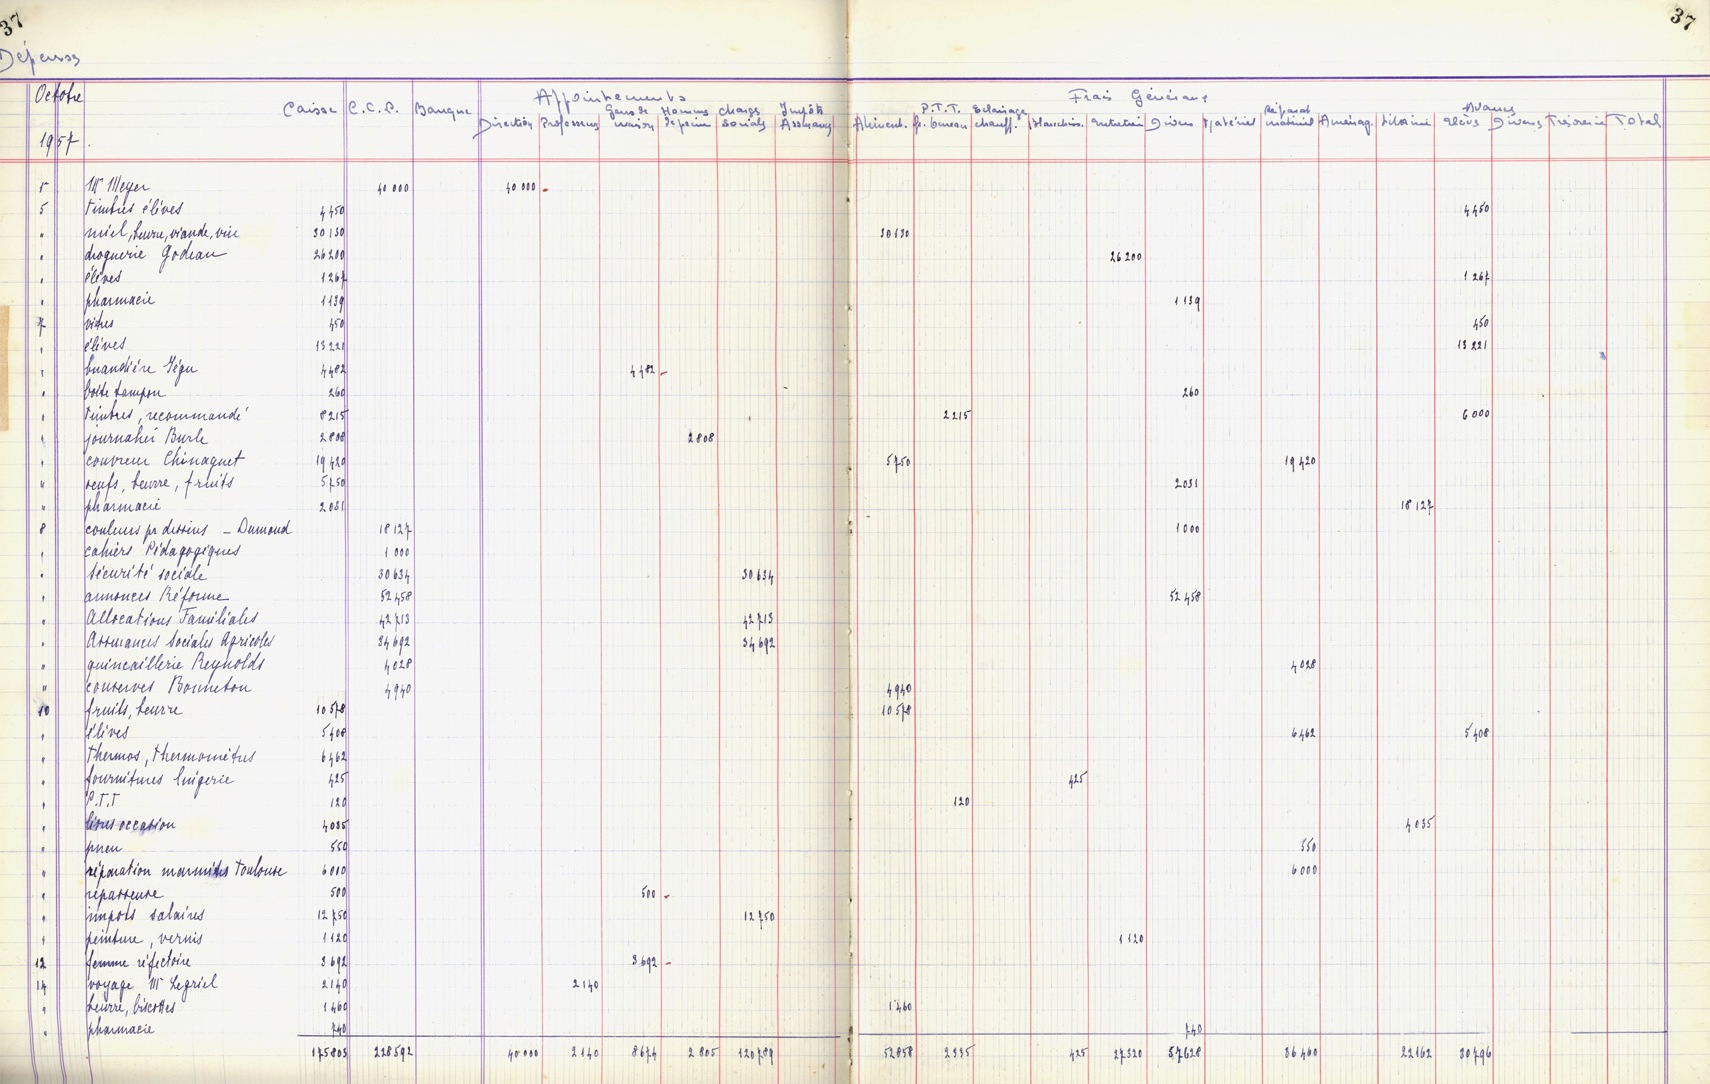 37 37
Dépenses
Octobre 1957
Appointements Frais Généraux Avances
Caisse C.C.P. Banque Direction Professeurs Gens de maison Hommes de peine Charges Sociales Impôts Assurances Aliment. P.T.T. fr. bureau Eclairage chauff. Blanchiss. Entretien Divers Matériel Réparat. matériel Aménag. Librairie élèves Divers Trésorerie Total
5 Mr Meyer 40 000 40 000
5 timbres élèves 4 450 4 450
" miel, beurre, viande, vin 30 130 30 130
" droguerie Godeau 26 200 26 200
" élèves 1 267 1 267
" pharmacie 1 139 1 139
7 vitres 450 450
" élèves 13 221 13 221
" buandière Ségu 4 482 4 482
" boîte tampon 260 260
" timbres, recommandé 8 215 2 215 6 000
" journalier Burle 2 808 2 808
" couvreur Chinaguet 19 420 5 750 19 420
" oeufs, beurre, fruits 5 750 2 031
" pharmacie 2 031 18 127
8 couleurs pr dessins - Dumond 18 127 1 000
" cahiers Pédagogiques 1 000
" Sécurité sociale 30 634 30 634
" annonces Réforme 52 458 52 458
" Allocations Familiales 42 713 42 713
" Assurances Sociales Agricoles 34 692 34 692
" quincaillerie Reynolds 4 028 4 028
" conserves Bonneton 4 940 4 940
10 fruits, beurre 10 578 10 578
" élèves 5 408 6 462 5 408
" thermos, thermomètres 6 462
" fournitures lingerie 425 425
" P.T.T 120 120
" livres occasion 4 035 4 035
" pneu 550 550
" réparation marmites Toulouse 6 000 6 000
" repasseuse 500 500
" impots salaires 12 750 12 750
" peinture, vernis 1 120 1 120
12 femme réfectoire 3 692 3 692
14 voyage Mr Legriel 2 140 2 140
" beurre, biscottes 1 460 1 460
" pharmacie 740 740
175 803 228 592 40 000 2 140 8 674 2 808 120 789 52 858 2 335 425 27 320 57 628 36 460 22 162 30 796